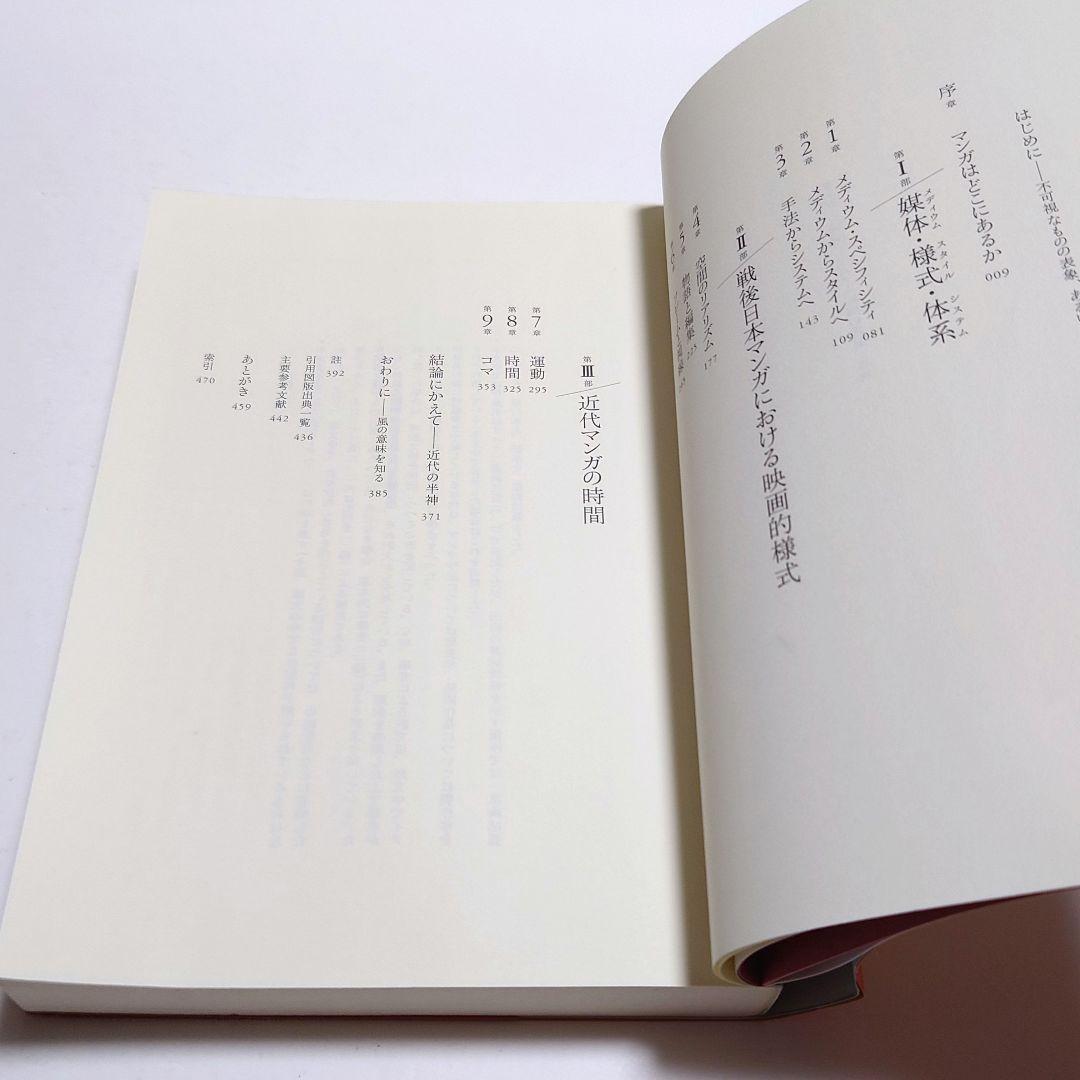 はじめに——不可視なものの表象、ある
序章 マンガはどこにあるか 009
第Ⅰ部 媒体・様式・体系
メディウム スタイル システム
第1章 メディウム・スペシフィシティ 081
第2章 メディウムからスタイルへ 109
第3章 手法からシステムへ 143
第Ⅱ部 戦後日本マンガにおける映画的様式
第4章 空間のリアリズム 177
第5章 物語と編集
第Ⅲ部 近代マンガの時間
第7章 運動 295
第8章 時間 325
第9章 コマ 353
結論にかえて——近代の半神 371
おわりに——風の意味を知る 385
註 392
引用図版出典一覧 436
主要参考文献 442
あとがき 459
索引 470